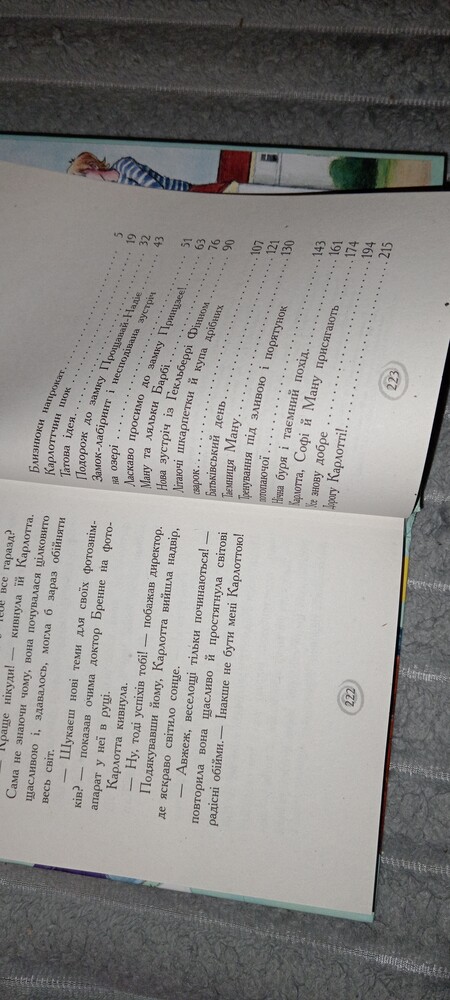 тебе все гаразд?
— Краще нікуди! — кивнула їй Карлотта.
Сама не знаючи чому, вона почувалася цілковито
щасливою і, здавалось, могла б зараз обійняти
весь світ.
— Шукаєш нові теми для своїх фотознім-
ків? — показав очима доктор Бренне на фото-
апарат у неї в руці.
Карлотта кивнула.
— Ну, тоді успіхів тобі! — побажав директор.
Подякувавши йому, Карлотта вийшла надвір,
де яскраво світило сонце.
— Авжеж, веселощі тільки починаються! —
повторила вона щасливо й простягнула світові
радісні обійми. — Інакше не бути мені Карлоттою!
222
Близнюки напрокат 5
Карлоттчин шок 19
Татова ідея 32
Подорож до замку Прощавай-Надіє 43
Замок-лабіринт і несподівана зустріч
на озері 51
Ласкаво просимо до замку Принцзее! 63
Ману та ляльки Барбі 76
Нова зустріч із Гекльберрі Фінном 90
Літаючі шкарпетки й купа дрібних
сварок 107
Батьківський день 121
Таємниця Ману 130
Тренування під зливою і порятунок
потопаючої 143
Нічна буря і таємний похід 161
Карлотта, Софі й Ману присягають 174
Усе знову добре 194
Дорогу Карлотті! 215
223